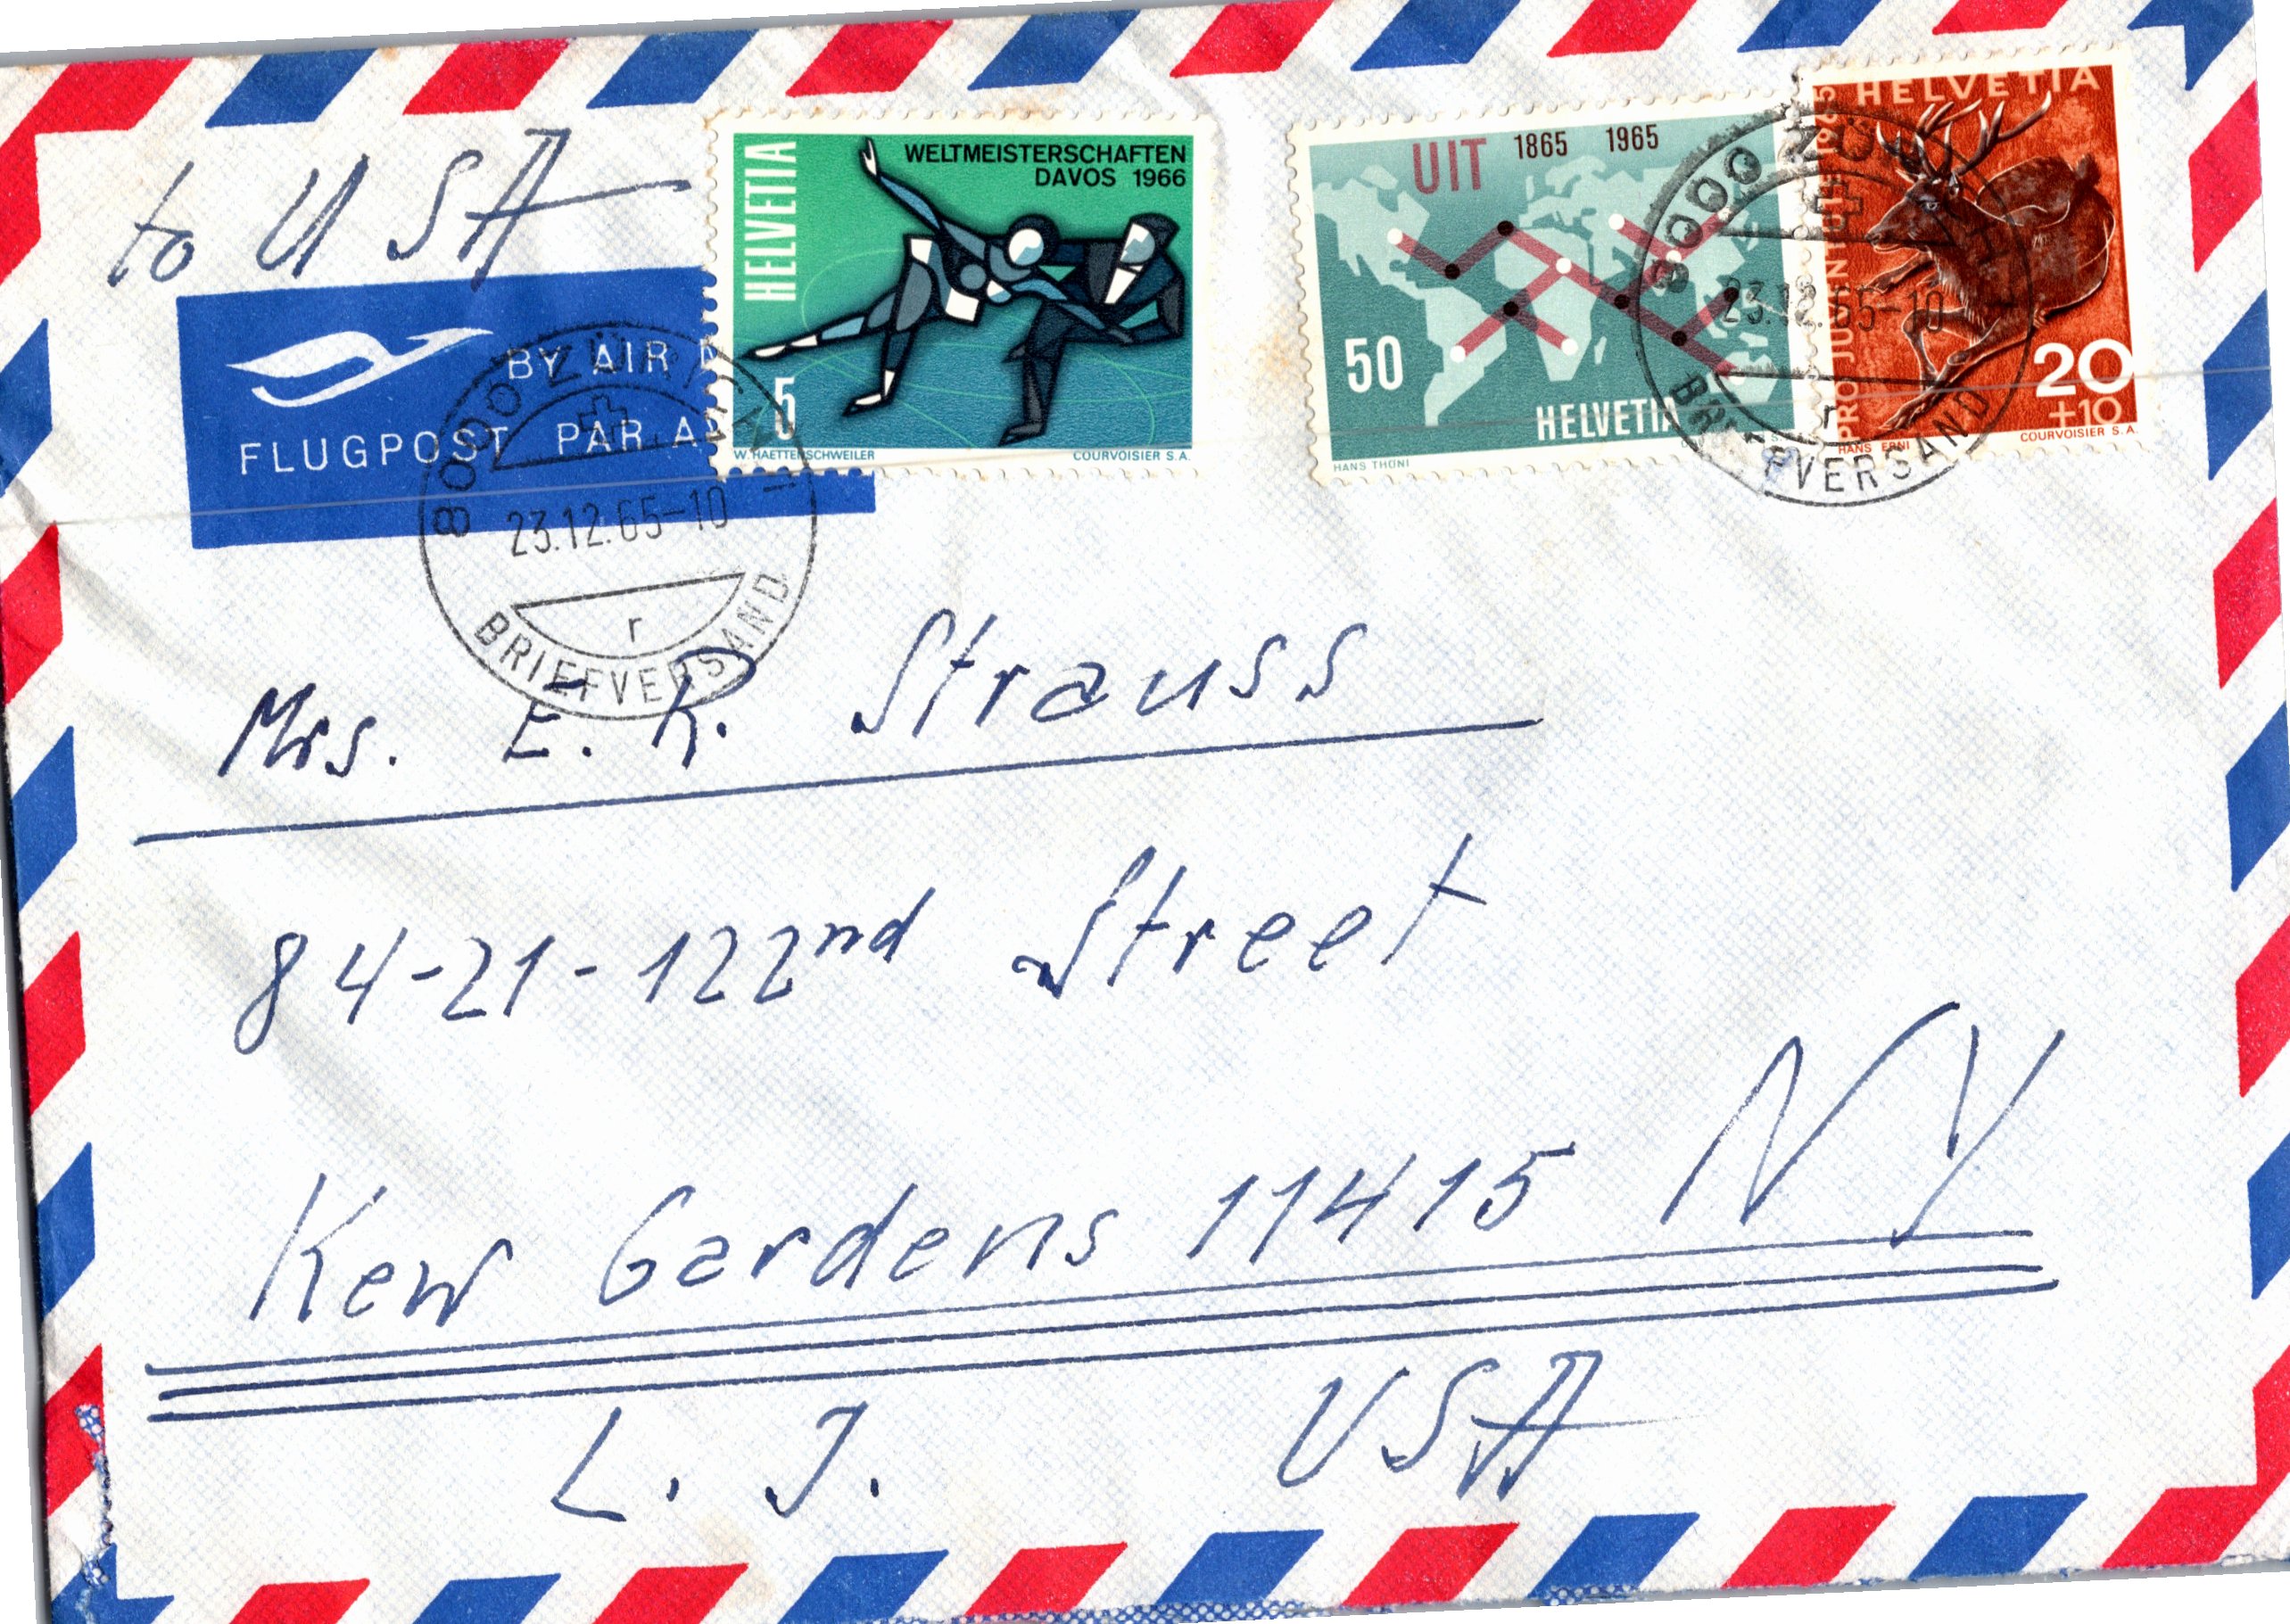 to USA
BY AIR
FLUGPOST PAR
HELVETIA
WELTMEISTERSCHAFTEN
DAVOS 1966
5
W. HAETTENSCHWEILER COURVOISIER S.A.
UIT 1865 1965
50
HELVETIA
HANS THÖNI
HELVETIA
PRO JUVENTUTE 1965
20
+10
HANS ERNI COURVOISIER S.A.
8000 ZÜRICH 1
23.12.65-10
r
BRIEFVERSAND
8000
23.12.65-10
r
BRIEFVERSAND
Mrs. E. R. Strauss
84-21-122nd Street
Kew Gardens 11415 NY
L. J. USA